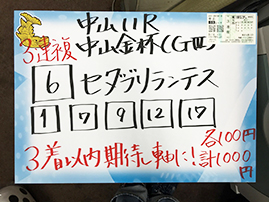 中山11R
3連複 中山金杯(GⅢ)
6 セダブリランテス
1 7 9 12 17
3着以内期待し軸に!
各100円
計1000円